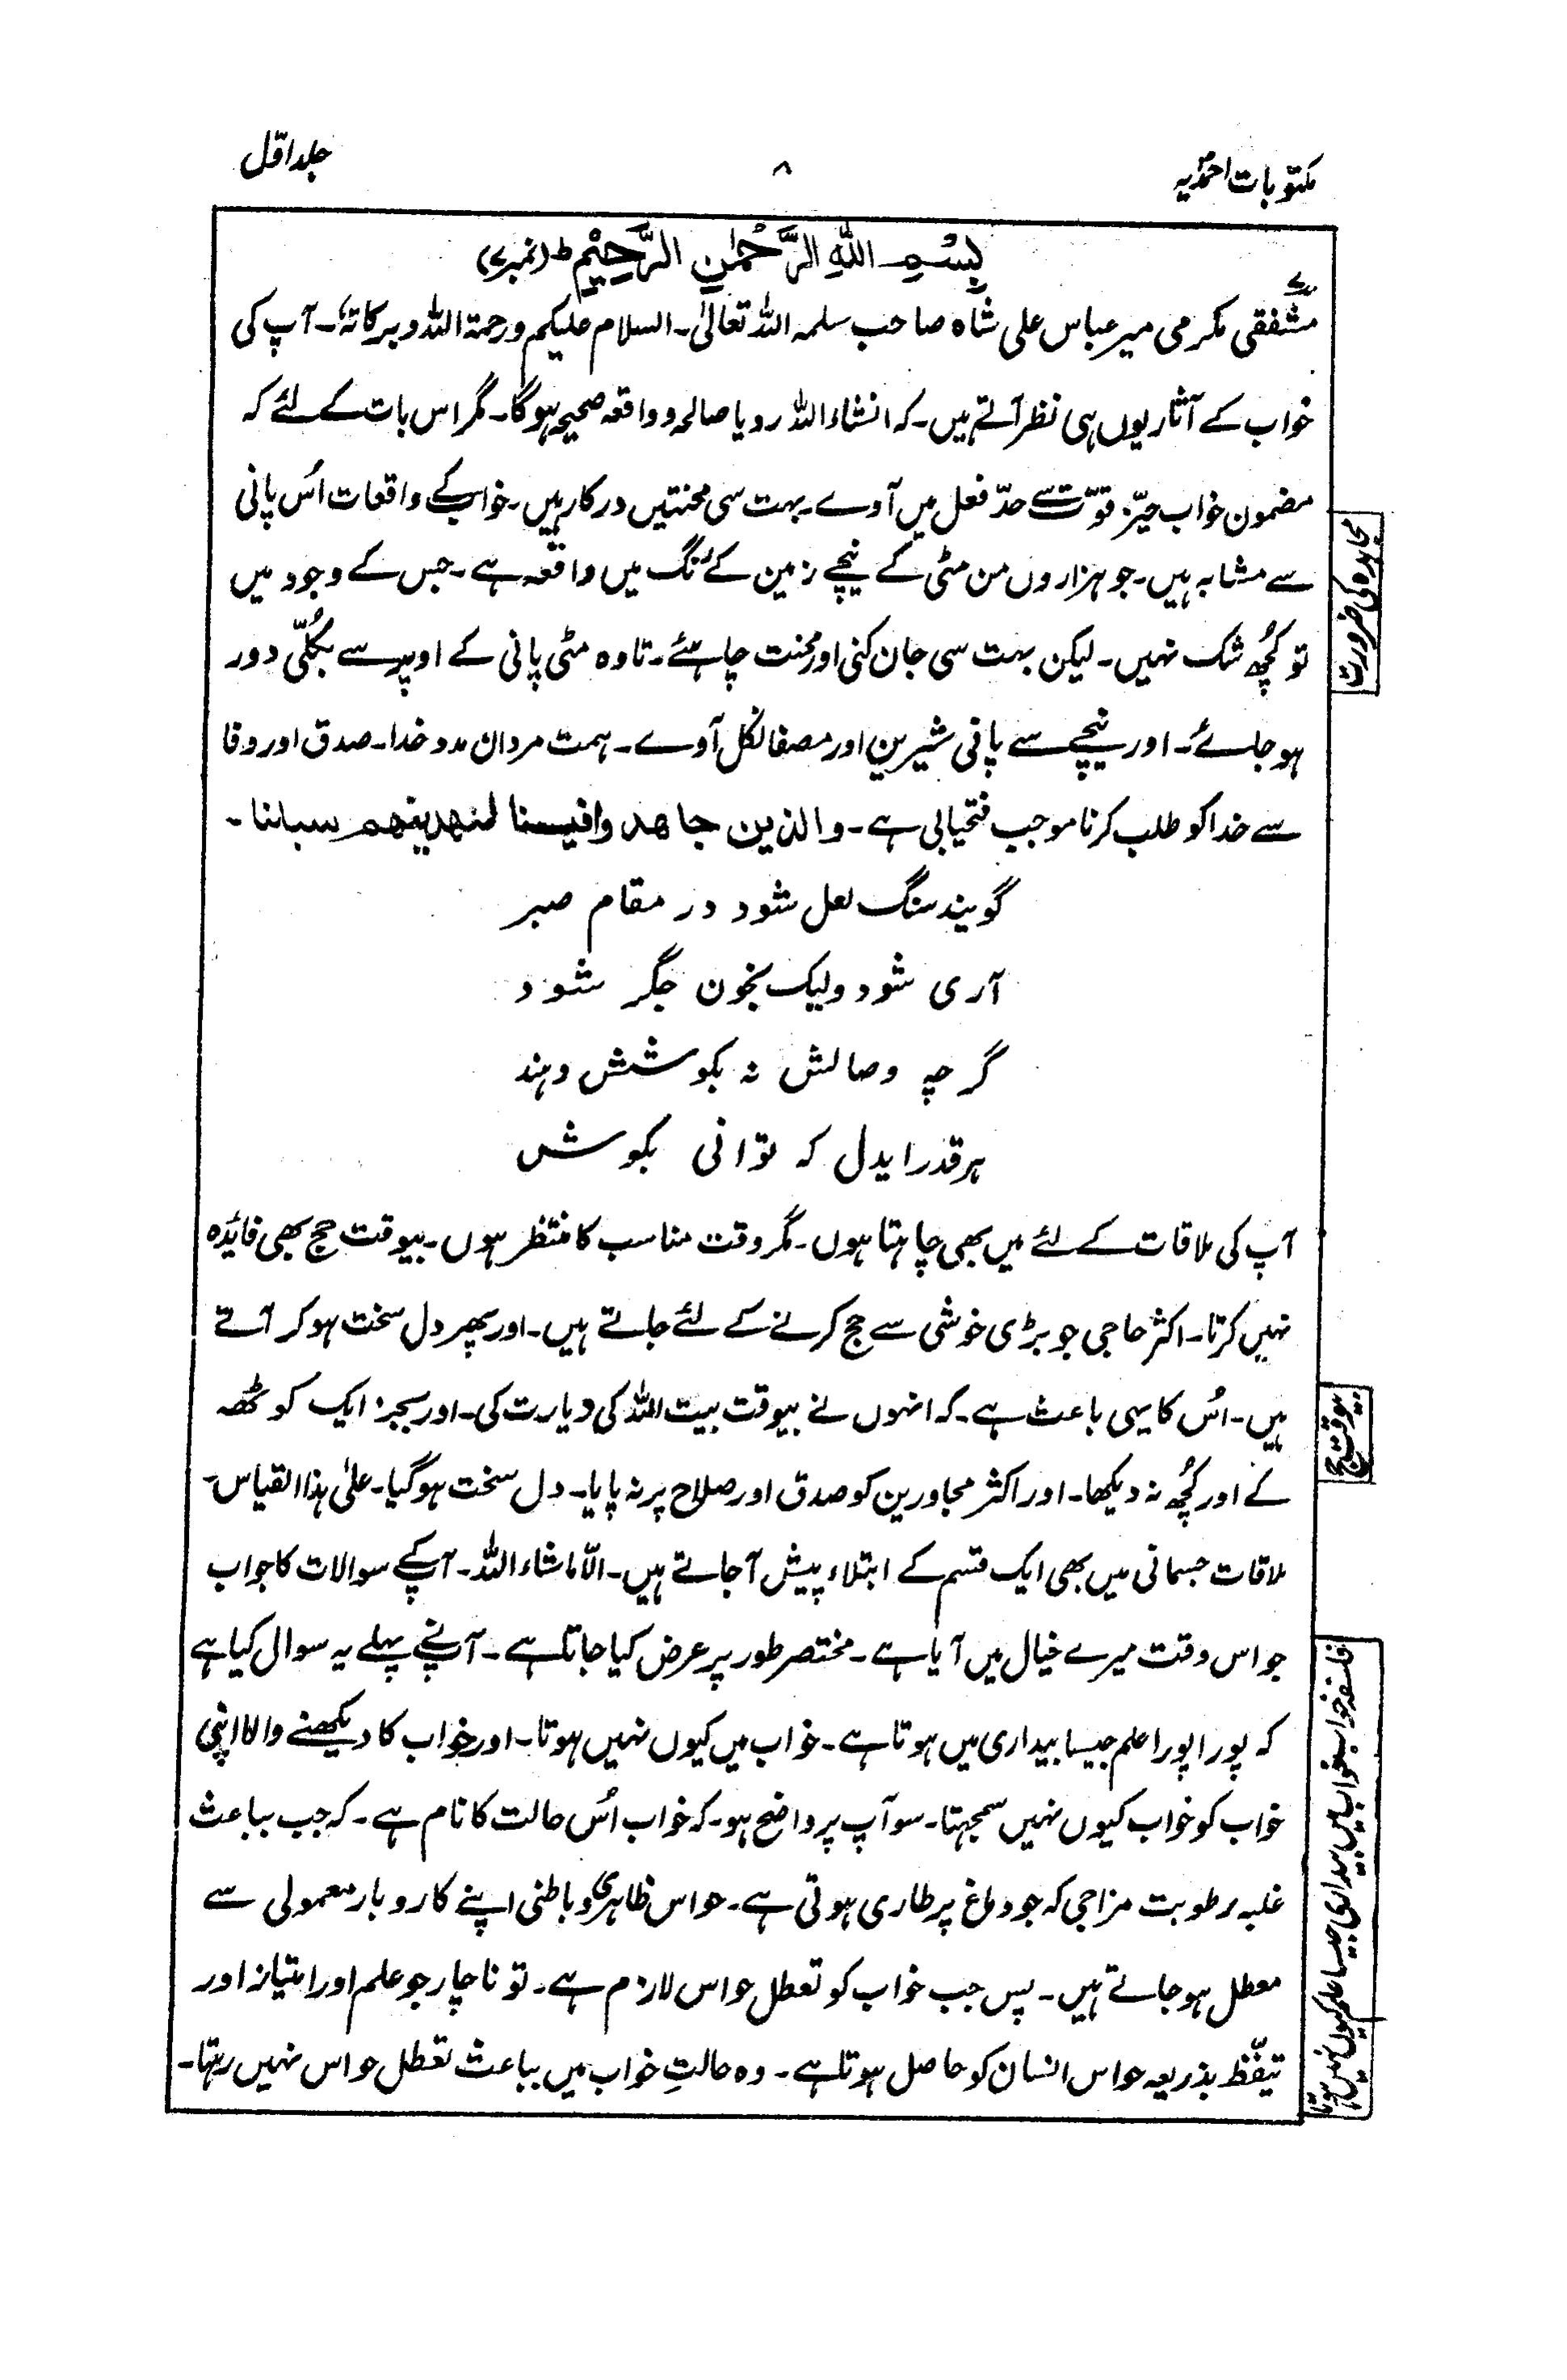 مکتوبات احمدیہ
۸
جلد اوّل
بِسْمِ اللّٰہِ الرَّحْمٰنِ الرَّحِیْمِ ط (نمبر ۷)
مشفقی مکرمی میر عباس علی شاہ صاحب سلمہ اللہ تعالیٰ۔ السلام علیکم ورحمۃ اللہ وبرکاتہٗ۔ آپ کی
خواب کے آثار یوں ہی نظر آتے ہیں۔ کہ انشاء اللہ رویا صالحہ و واقعہ صحیحہ ہوگا۔ مگر اس بات کے لئے کہ
مضمون خواب حیّز قوّت سے حدّ فعل میں آوے۔ بہت سی محنتیں درکار ہیں۔ خواب کے واقعات اُس پانی
سے مشابہ ہیں۔ جو ہزاروں من مٹی کے نیچے زمین کے تگ میں واقعہ ہے۔ جس کے وجود میں
تو کُچھ شک نہیں۔ لیکن بہت سی جان کنی اور محنت چاہئے۔ تا وہ مٹی پانی کے اوپر سے بکُلّی دور
ہو جائے۔ اور نیچے سے پانی شیریں اور مصفا نکل آوے۔ ہمت مردان مدد خدا۔ صدق اور وفا
سے خدا کو طلب کرنا موجب فتحیابی ہے۔ والذین جاھدوا فیسنا لنھدینھم سبلنا۔
گویند سنگ لعل شود در مقام صبر
آری شود ولیک بخون جگر شود
گرچہ وصالش نہ بکوشش دہند
ہر قدر ایدل کہ توانی بکوش
آپ کی ملاقات کے لئے میں بھی چاہتا ہوں۔ مگر وقت مناسب کا منتظر ہوں۔ بیوقت حج بھی فایدٔہ
نہیں کرتا۔ اکثر حاجی جو بڑی خوشی سے حج کرنے کے لئے جاتے ہیں۔ اور پھر دل سخت ہو کر آتے
ہیں۔ اُس کا یہی باعث ہے۔ کہ انہوں نے بیوقت بیت اللہ کی دیارت کی۔ اور بجز ایک کوٹھہ
کے اور کُچھ نہ دیکھا۔ اور اکثر مجاورین کو صدق اور صلاح پر نہ پایا۔ دل سخت ہو گیا۔ علیٰ ہذا القیاس۔
ملاقات جسمانی میں بھی ایک قسم کے ابتلاء پیش آجاتے ہیں۔ الّا ماشاء اللہ۔ آپکے سوالات کا جواب
جو اس وقت میرے خیال میں آیا ہے۔ مختصر طور پر عرض کیا جاتا ہے۔ آپنے پہلے یہ سوال کیا ہے
کہ پورا پورا علم جیسا بیداری میں ہوتا ہے۔ خواب میں کیوں نہیں ہوتا۔ اور خواب کا دیکھنے والا اپنی
خواب کو خواب کیوں نہیں سمجہتا۔ سو آپ پر واضح ہو۔ کہ خواب اُس حالت کا نام ہے۔ کہ جب بباعث
غلبہ رطوبت مزاجی کہ جو دماغ پر طاری ہوتی ہے۔ حواس ظاہری و باطنی اپنے کاروبار معمولی سے
معطل ہو جاتے ہیں۔ پس جب خواب کو تعطل حواس لازم ہے۔ تو ناچار جو علم اور امتیاز اور
تیقّظ بذریعہ حواس انسان کو حاصل ہوتا ہے۔ وہ حالتِ خواب میں بباعث تعطل حواس نہیں رہتا۔
مجاہدہ کی ضرورت
بیوقت حج
فلسفہ خواب خواب میں بیداری جیسا علم کیوں نہیں ہوتا